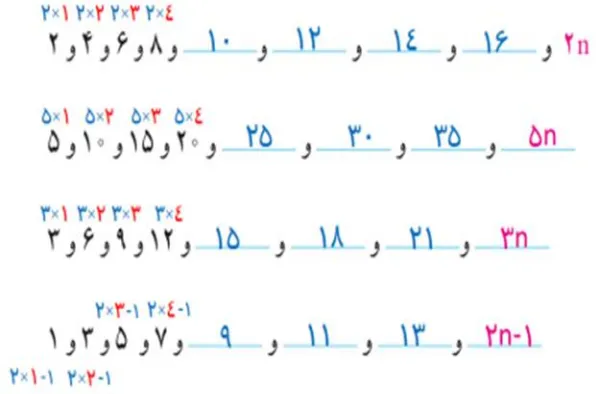 ۲×۱ ۲×۲ ۲×۳ ۲×٤
۲ و ۴ و ۶ و ۸ و ۱۰ و ۱۲ و ۱٤ و ۱۶ و ۲n
۵×۱ ۵×۲ ۵×۳ ۵×٤
۵ و ۱۰ و ۱۵ و ۲۰ و ۲۵ و ۳۰ و ۳۵ و ۵n
۳×۱ ۳×۲ ۳×۳ ۳×٤
۳ و ۶ و ۹ و ۱۲ و ۱۵ و ۱۸ و ۲۱ و ۳n
۲×۳-۱ ۲×٤-۱
۱ و ۳ و ۵ و ۷ و ۹ و ۱۱ و ۱۳ و ۲n-۱
۲×۱-۱ ۲×۲-۱